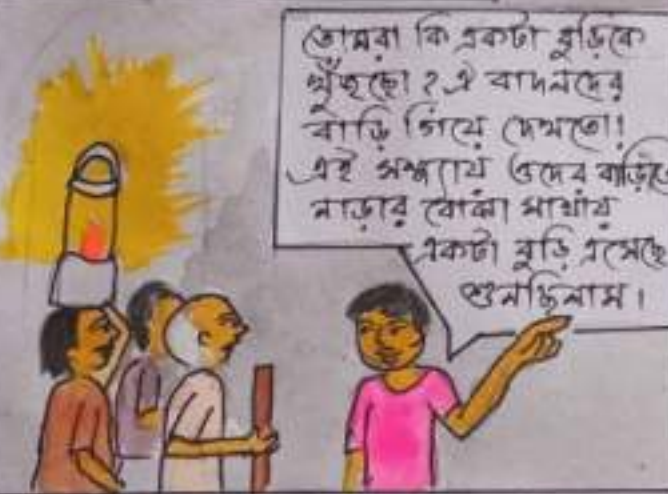 তোমরা কি একটা বুড়িকে
খুঁজছো? ঐ বাদলদের
বাড়ি গিয়ে দেখতো!
এই সন্ধ্যায় ওদের বাড়িতে
নাড়ার বোঝা মাথায়
একটা বুড়ি এসেছে
শুনছিলাম।